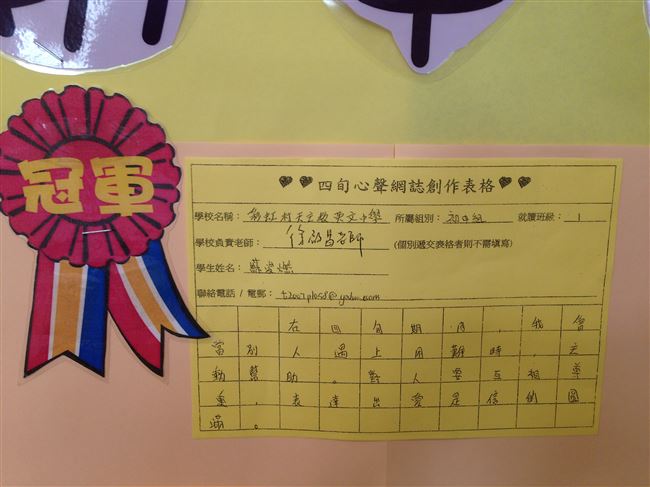 冠軍
四旬心聲網誌創作表格
學校名稱：彩虹村天主教英文中學 所屬組別：初中組 就讀班級：1
學校負責老師：徐 昌老師 (個別遞交表格者則不需填寫)
學生姓名：蘇
聯絡電話 / 電郵：
在四旬期內，我會
當別人遇上困難時，主
動幫助。對人要互相尊
重，表達出愛是信的圓
滿。